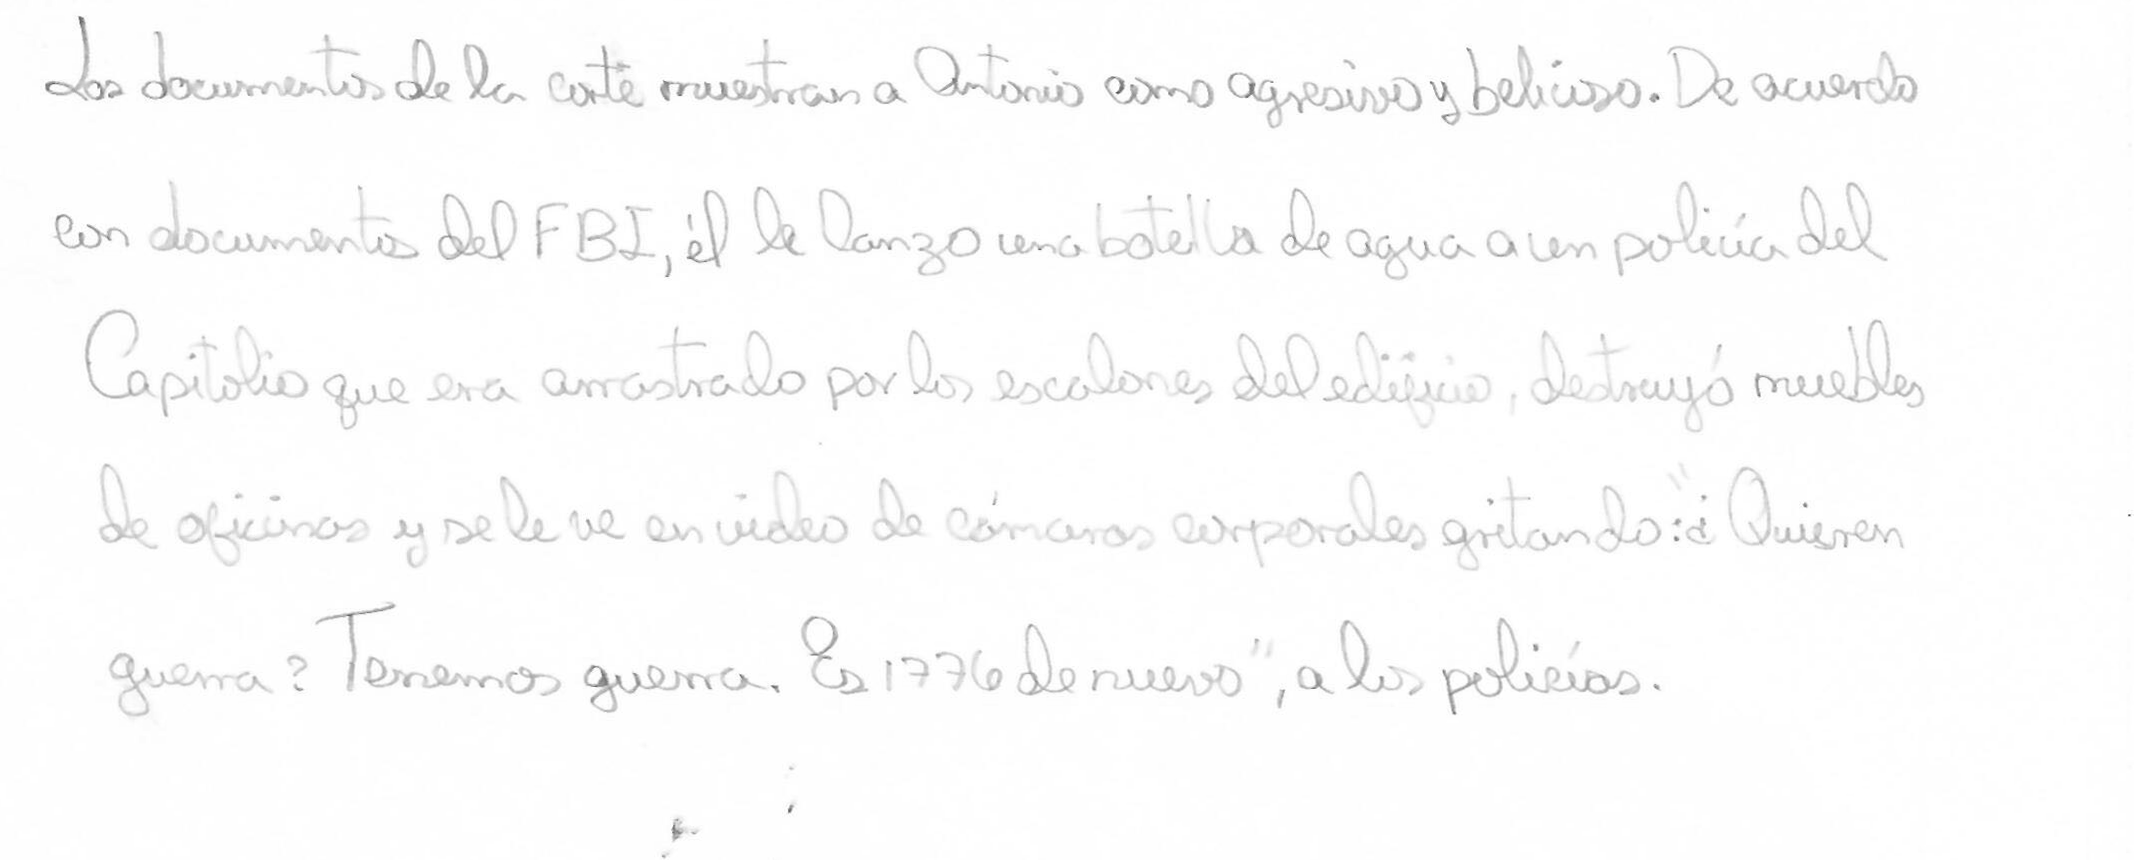 Los documentos de la corte muestran a Antonio como agresivo y belicoso. De acuerdo
con documentos del FBI, él le lanzo una botella de agua a un policía del
Capitolio que era arrastrado por los escalones del edificio, destruyó muebles
de oficinas y se le ve en video de cámaras corporales gritando: "¿Quieren
guerra? Tenemos guerra. Es 1776 de nuevo", a los policías.